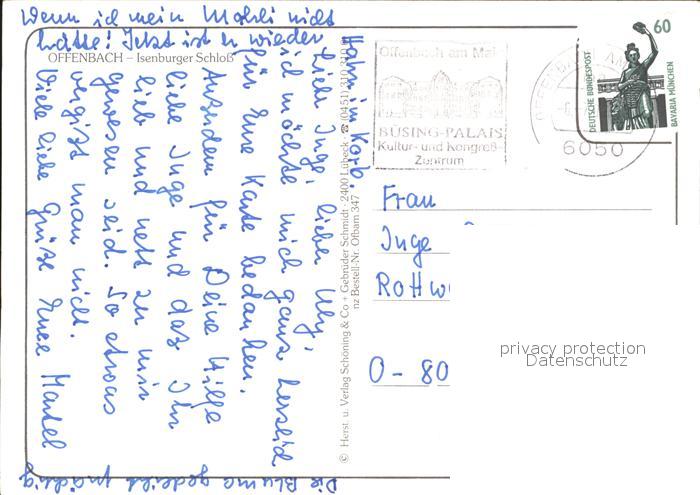 Wenn ich mein Mohli nicht
hätte! Jetzt ist er wieder
Hahn im Korb.
OFFENBACH – Isenburger Schloß
Liebe Inge, lieber Uly,
ich möchte mich ganz herzlich
für Eure Karte bedanken.
Außerdem für Deine Hilfe
liebe Inge und daß Ihr
lieb und nett zu mir
gewesen seid. So etwas
vergißt man nicht.
Viele liebe Grüße Euer
Die Blume gedeiht prächtig
© Herst. u. Verlag Schöning & Co + Gebrüder Schmidt · 2400 Lübeck · ☎ (0451)
nz Bestell-Nr. Ofbam 347
Offenbach am Main
BÜSING-PALAIS
Kultur- und Kongreß-
Zentrum
OFFENBACH AM
6050
60
DEUTSCHE BUNDESPOST
BAVARIA MÜNCHEN
Frau
Inge
Rottw
O - 80
privacy protection
Datenschutz